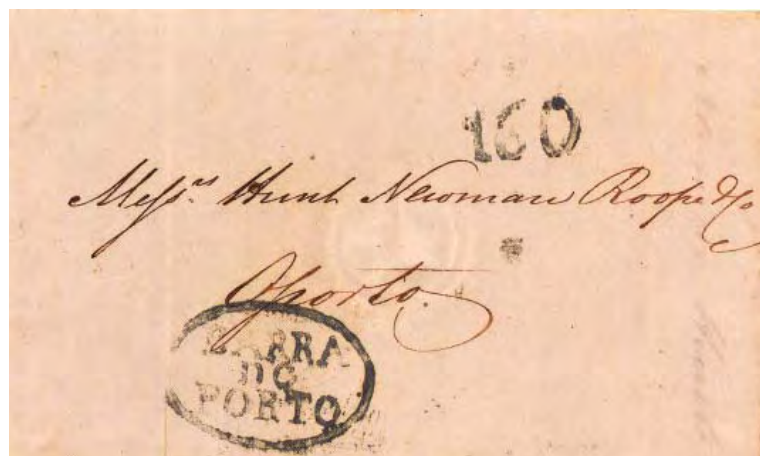 160
Messrs Hunt Newman Roope & Co
Oporto.
BARRA
DO
PORTO